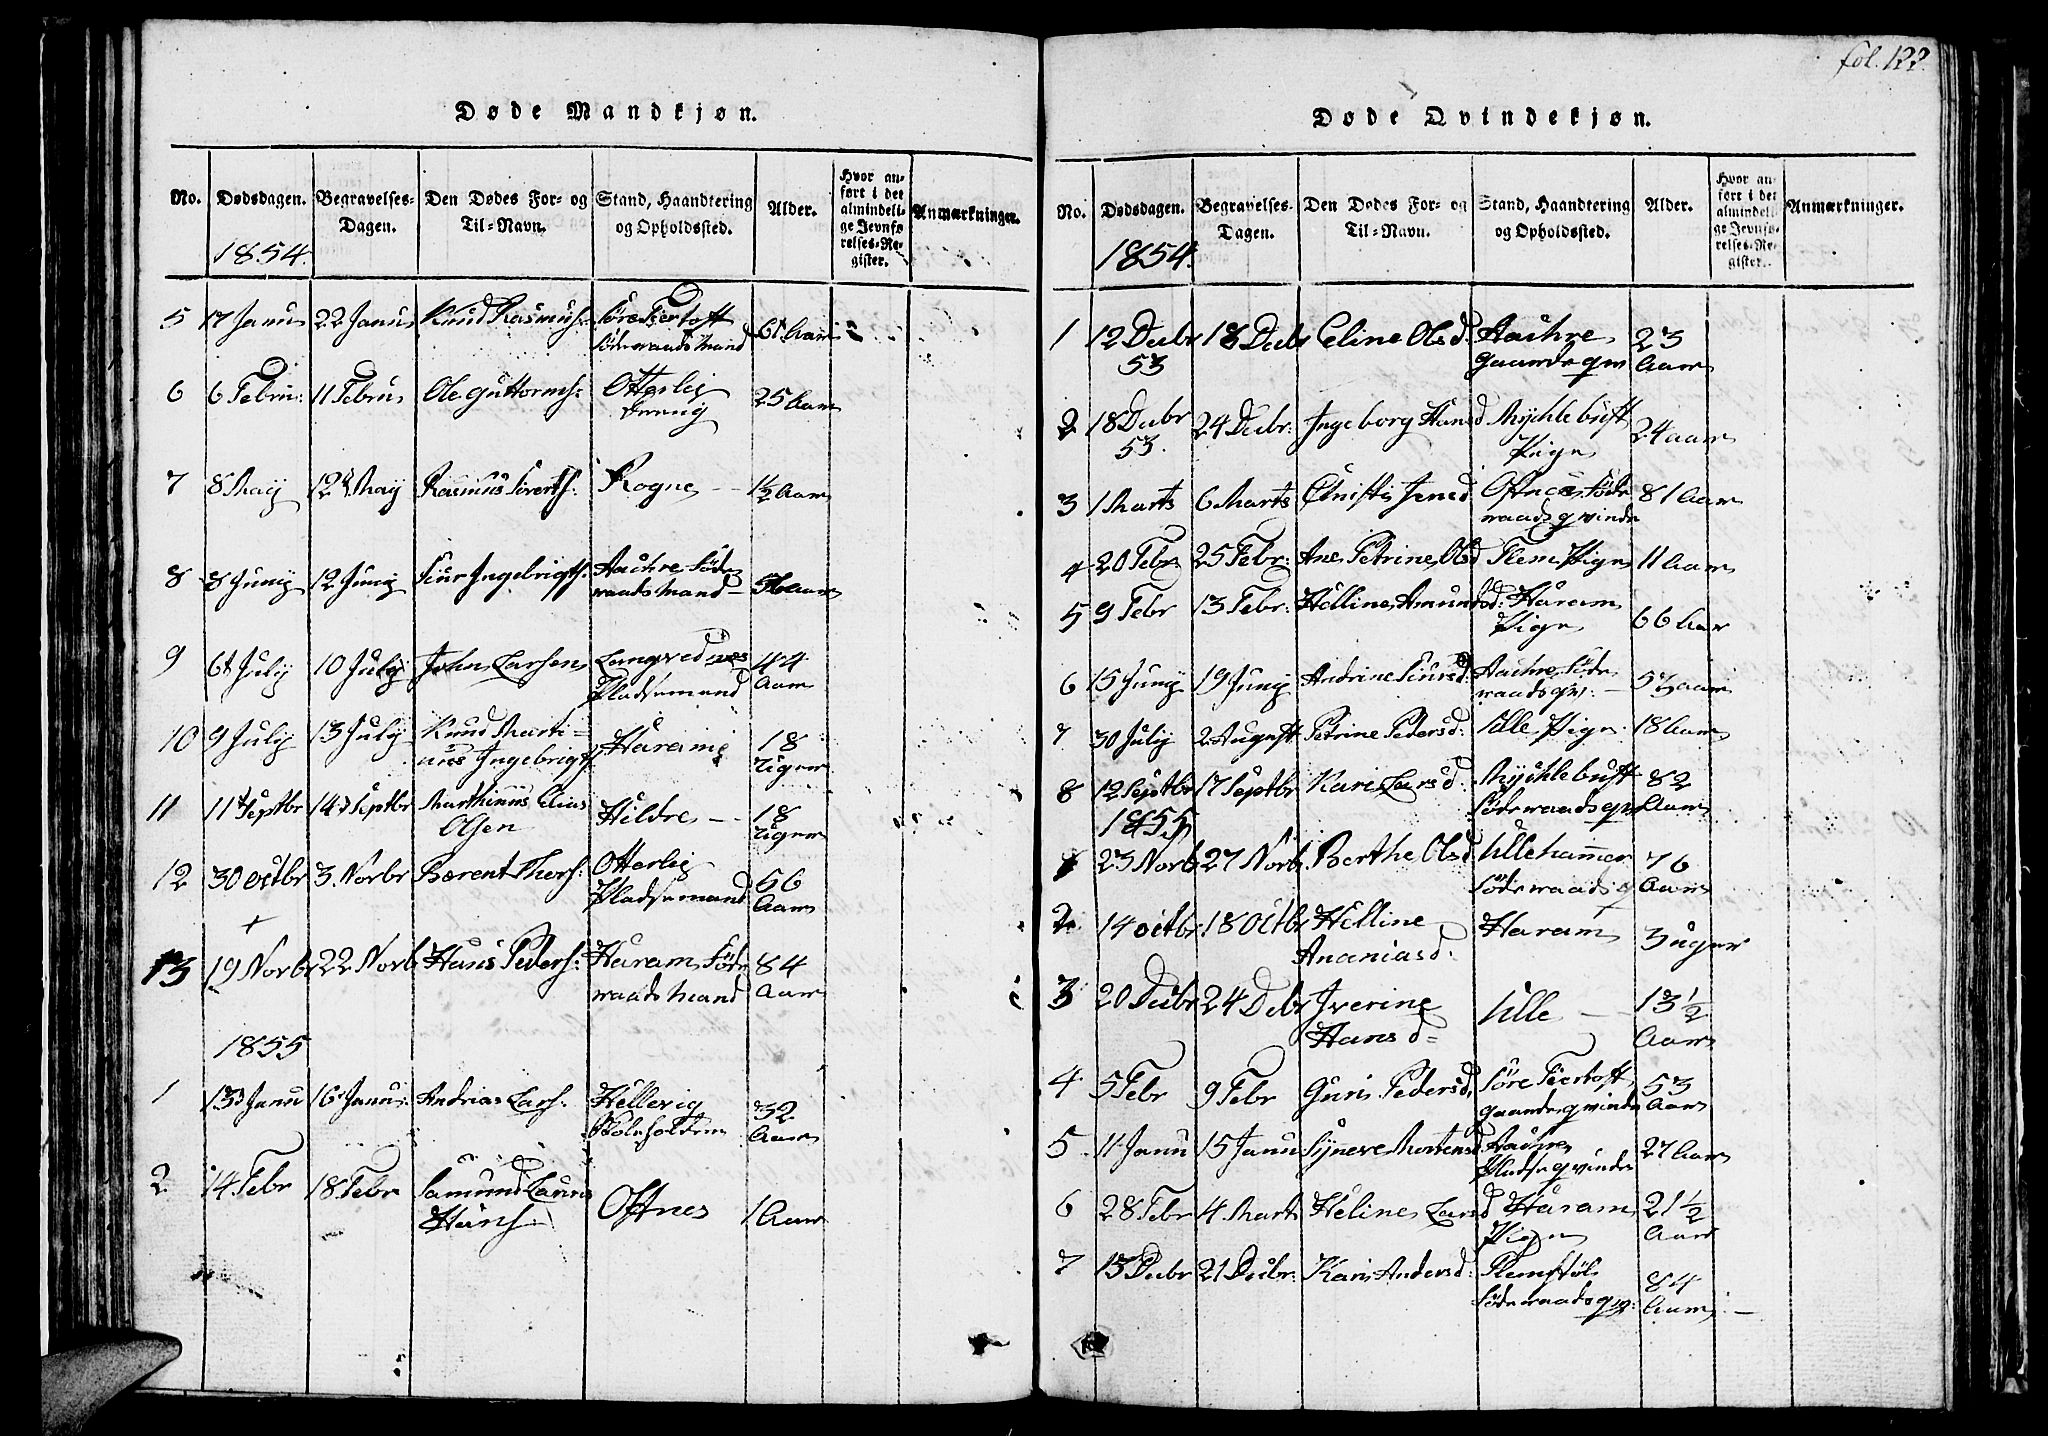 fol. 122.
Døde Mandkjøn.
No. Dødsdagen. Begravelses-Dagen. Den Dødes For- og Til-Navn. Stand, Haandtering og Opholdssted. Alder. Hvor anført i det almindelige Jevnførelses-Register. Anmærkninger.
1854.
5 17 Janu 22 Janu Knud Rasmus: Søre Fiertoft 61 Aar
Föderaads Mand
6 6 Febru: 11 Febru Ole Guttorms: Otterlei 25 Aar
Dreng
7 8 May 12 May Rasmus Siverts: Rogne - 1½ Aar
8 8 Juny 12 Juny Siur Ingebrigts: Aachre Föde
raads Mand -
9 6t July 10 July John Larsen Longved 44
Pladsemand Aar
10 9 July 13 July Knud Marti-
nus Ingebrigts Harams 18
Uger
11 11t Septbr 14d Septbr Marthinus Elias Hildre - 18
Olsen Uger
12 30 Octbr 3. Norbr Barent Thors: Otterlei 56
Pladsemand Aar
13 19 Norbr 22 Norb Hans Peders: Haram Föde 84
raads Mand Aar
1855
1 13d Janu 16 Janu: Andrias Lars: Hellevig 32
Aar
2 14 Febr 18 Febr Samund Laurits
Hans: Oftnes 1 Aar
Døde Qvindekjøn.
No. Dødsdagen. Begravelses-Dagen. Den Dødes For- og Til-Navn. Stand, Haandtering og Opholdssted. Alder. Hvor anført i det almindelige Jevnførelses-Register. Anmærkninger.
1854.
1 12 Decbr 18 Decb Eline Olsd: Aachre 23
53 Gaardeqv Aar
2 18 Decbr 24 Decbr: Ingeborg Hansd Mychlebust 24 Aar
53. Pige
3 1 Marts 6 Marts Christi Jensd Oftnes Föde 81 Aar
raads qvinde
4 20 Febr 25 Febr: Ane Petrine Olsd Flem Pige 11 Aar
5 9 Febr 13 Febr: Helline Amundsd: Haram
Pige 66 Aar
6 15 Juny 19 Juny Andrine Siursd: Aachre Föde
raads qv: -
7 30 July 2 August Petrine Pedersd: Ulle Pige 18 Aar
8 12 Septbr 17 Septbr Kari Larsd: Mychlebust 82
Föderaads qv Aar
1855
1 23 Norb 27 Norb. Berthe Olsd Ullehammer 76
Föderaads q Aar
2 14 Octbr 18 Octbr Helline Haram 3 Uger
Ananiasd:
3 20 Decbr 24 Debr Iverine Ulle - 13½
Hansd= Aar
4 5 Febr 9 Febr Guri Pedersd, Søre Fiertoft 53
Gaardeqvinde Aar
5 11 Janu 15 Janu Synneve Mortensd Aachre 27 Aar
Pladseqvinde
6 28 Febr 4 Marts Heline Larsd Haram 21½
Pige Aar
7 15 Decbr 21 Decbr: Kari Andersd: Flemstøl 84
Föderaads qv: Aar